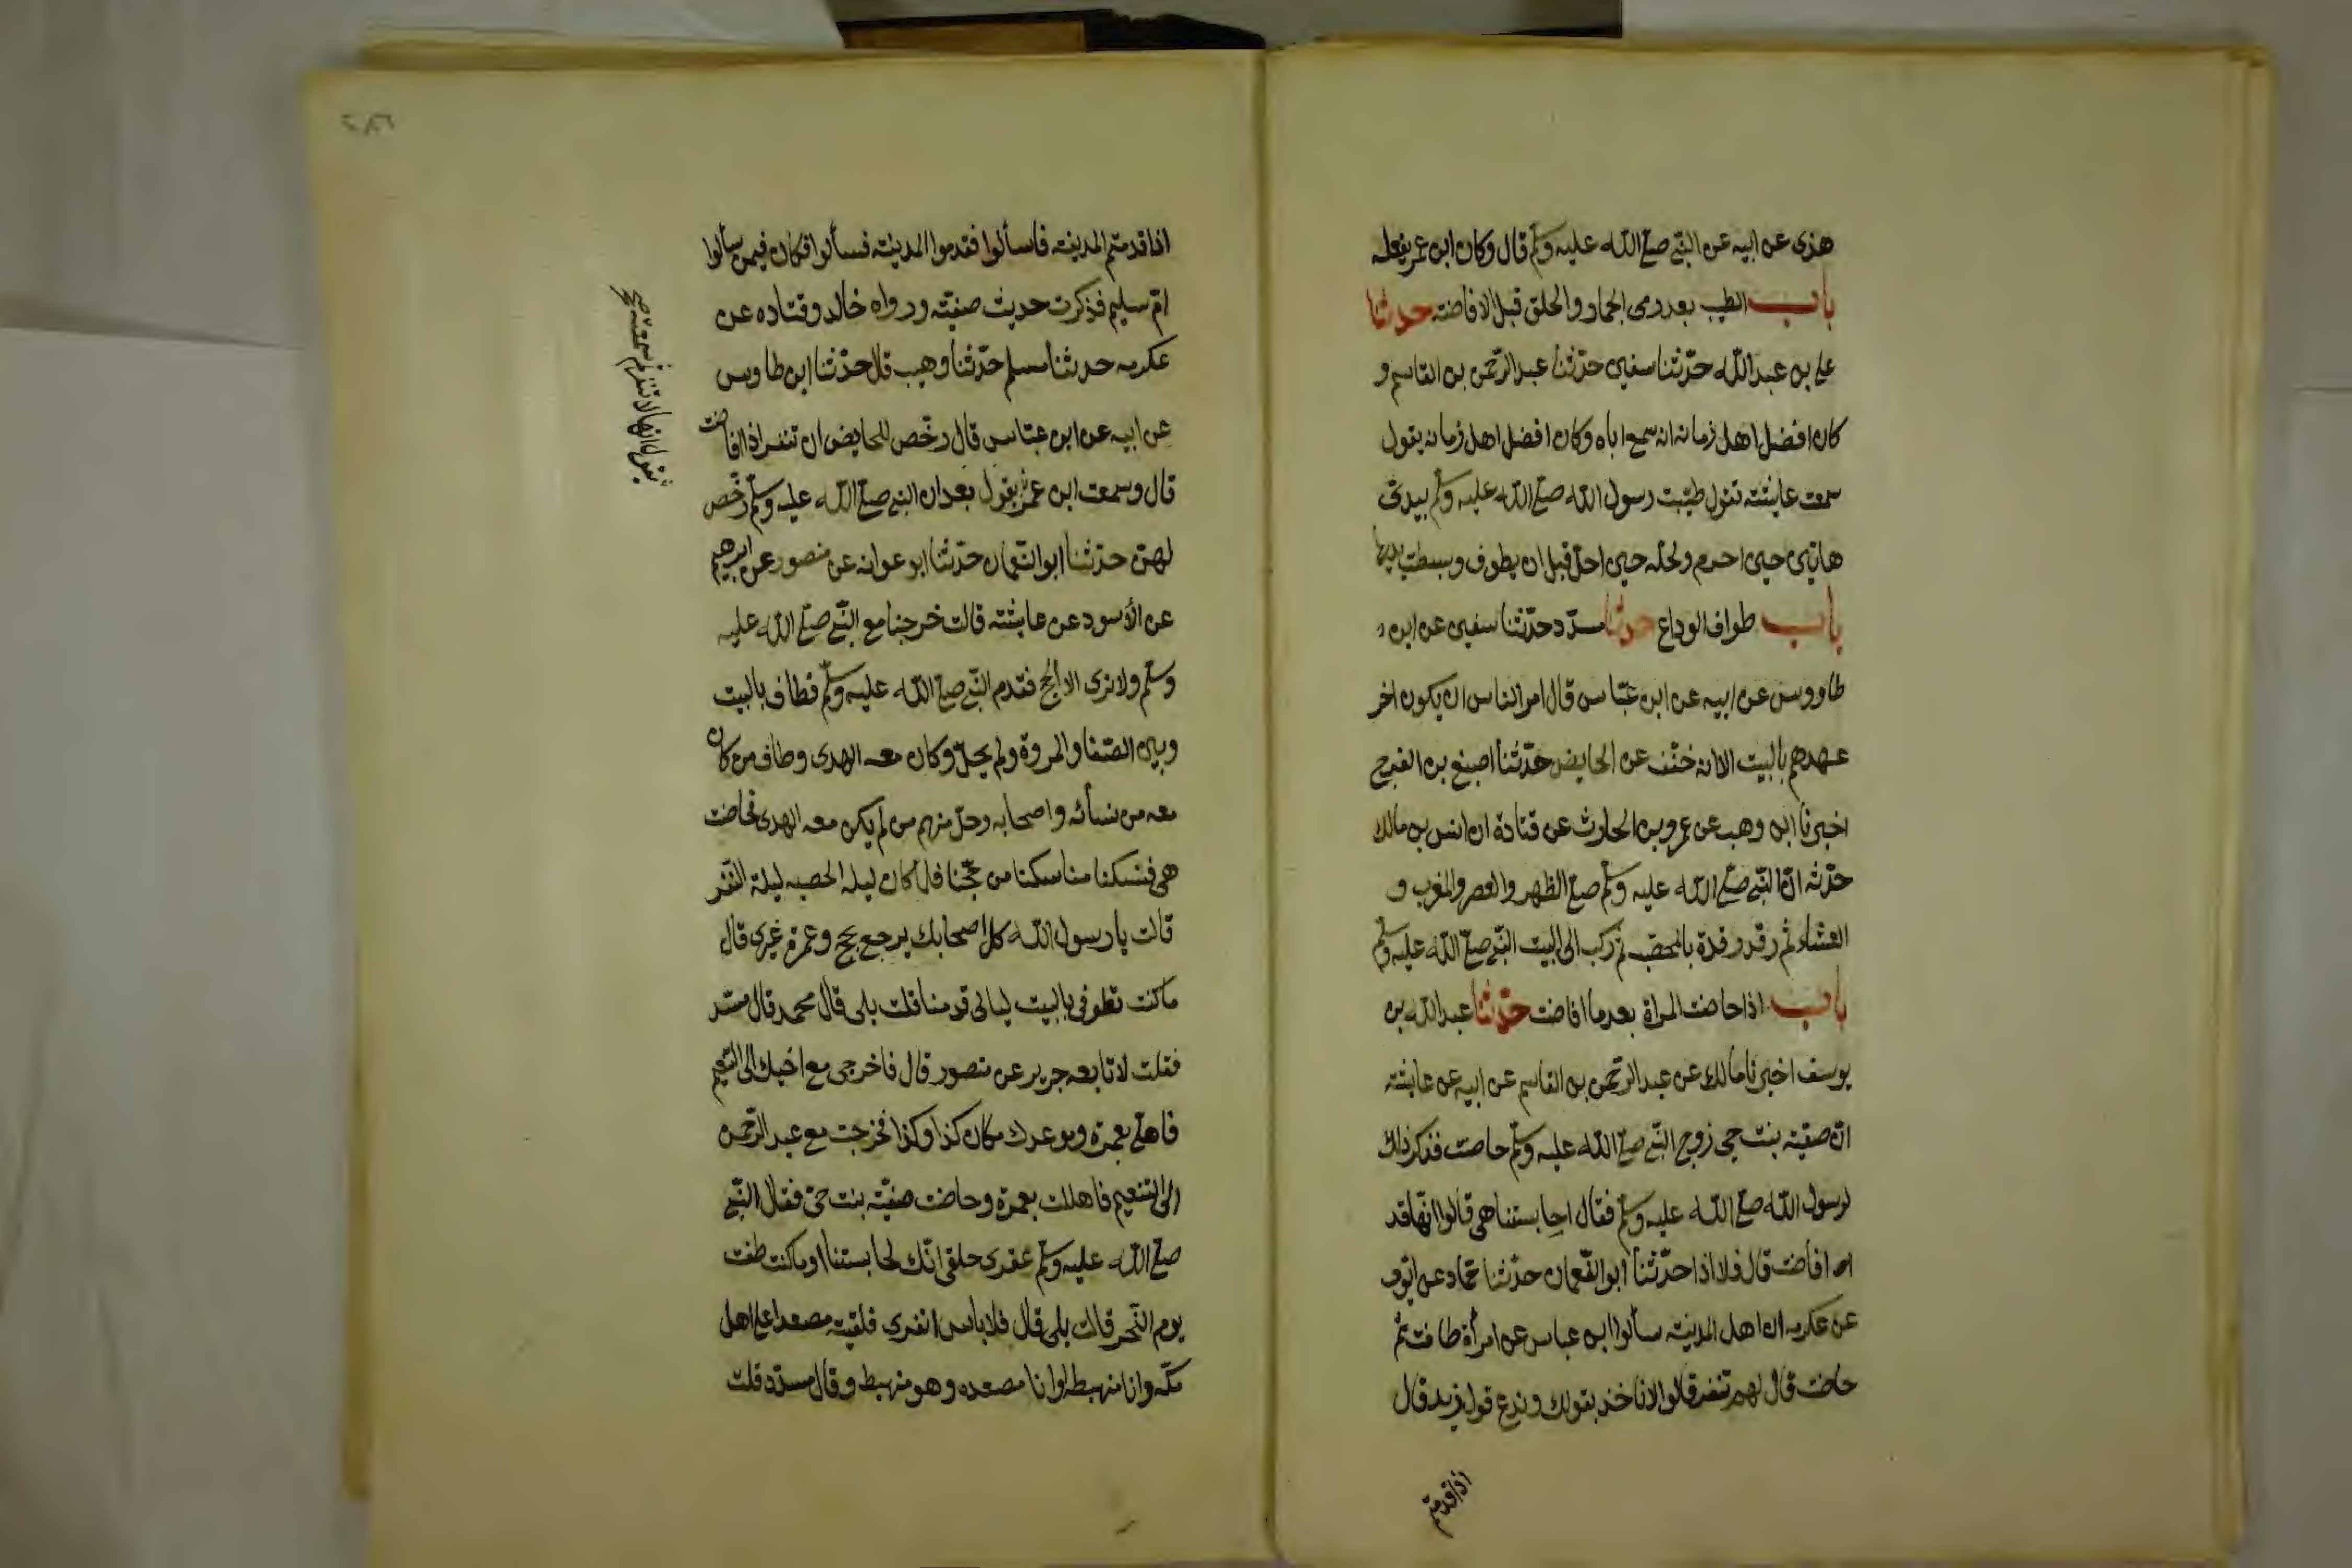 هذى عن ابيه عن النبى صلى الله عليه وسلم قال وكان ابن عمر يفعله
باب الطيب بعد رمى الجمار والحلق قبل الافاضة حدثنا
على بن عبد الله حدّثنا سفين حدّثنا عبد الرّحمن بن القاسم و
كان افضل اهل زمانه انه سمع اباه وكان افضل اهل زمانه يقول
سمعت عايشة تقول طيّبت رسول الله صلى الله عليه وسلم بيدىّ
هاتين حين احرم ولحله حين احلّ قبل ان يطوف وبسطت يديها
باب طواف الوداع حدثنا مسدّد حدّثنا سفين عن ابن
طاووس عن ابيه عن ابن عبّاس قال امر الناس ان يكون اخر
عهدهم بالبيت الا انه خفّف عن الحايض حدّثنا اصبغ بن الفرج
اخبرنا ابن وهب عن عمرو بن الحارث عن قتادة ان انس بن مالك
حدّثه انّ النّبى صلّى الله عليه وسلم صلى الظهر والعصر والمغرب و
العشاء ثم رقد رقدة بالمحصّب ثم ركب الى البيت النّبى صلى الله عليه وسلم
باب اذا حاضت المراة بعد ما افاضت حدّثنا عبد الله بن
يوسف اخبرنا مالك عن عبد الرّحمن بن القاسم عن ابيه عن عايشة
انّ صفيّة بنت حيى زوج النّبى صلى الله عليه وسلم حاضت فذكر ذلك
لرسول الله صلى الله عليه وسلم فقال احابستنا هى قالوا انّها قد
افاضت قال فلا اذا حدّثنا ابو النّعمان حدّثنا حمّاد عن ايّوب
عن عكرمه ان اهل المدينة سألوا ابن عباس عن امرأة طافت ثم
حاضت قال لهم تنفر قالوا لا ناخذ بقولك وندع قول زيد قال
اذا قدمتم
اذا قدمتم المدينه فاسألوا فقدموا المدينه فسألوا فكان فيمن سألوا
امّ سليم فذكرت حديث صفيّة ورواه خالد وقتاده عن
عكرمه حدثنا مسلم حدّثنا وهيب قال حدّثنا ابن طاوس
عن ابيه عن ابن عبّاس قال رخّص للحايض ان تنفر اذا افاضت
قال وسمعت ابن عمر يقول بعد ان النبى صلى الله عليه وسلم رخّص
لهنّ حدّثنا ابو النّعمان حدّثنا ابو عوانه عن منصور عن ابرهيم
عن الأسود عن عايشة قالت خرجنا مع النّبى صلى الله عليه
وسلم ولا نرى الا الحج فقدم النّبى صلى الله عليه وسلم فطاف بالبيت
وبين الصّفا والمروة ولم يحلّ وكان معه الهدى وطاف من كان
معه من نسائه واصحابه وحلّ منهم من لم يكن معه الهدى فحاضت
هى فنسكنا مناسكنا من حجّنا فلما كان ليله الحصبه ليلة النّفر
قالت يا رسول الله كل اصحابك يرجع بحج وعمرة غيرى قال
ما كنت تطوفى بالبيت ليالى قدمنا قلت بلى قال محمد قال مسدد
فقلت لا تابعه جرير عن منصور قال فاخرجى مع اخيك الى التّنعيم
فاهلّى بعمرة وموعدك مكان كذا وكذا فخرجت مع عبد الرّحمن
الى التنعيم فاهللت بعمرة وحاضت صفيّة بنت حيى فقال النّبى
صلى الله عليه وسلم عقرى حلقى انّك لحابستنا اوما كنت طفت
يوم النّحر قالت بلى قال فلا باس انفرى فلقيته مصعدا على اهل
مكّه وانا منهبطه او انا مصعده وهو منهبط وقال مسدّد قلت
يقول انها لا تنفر ثم سمعته صح